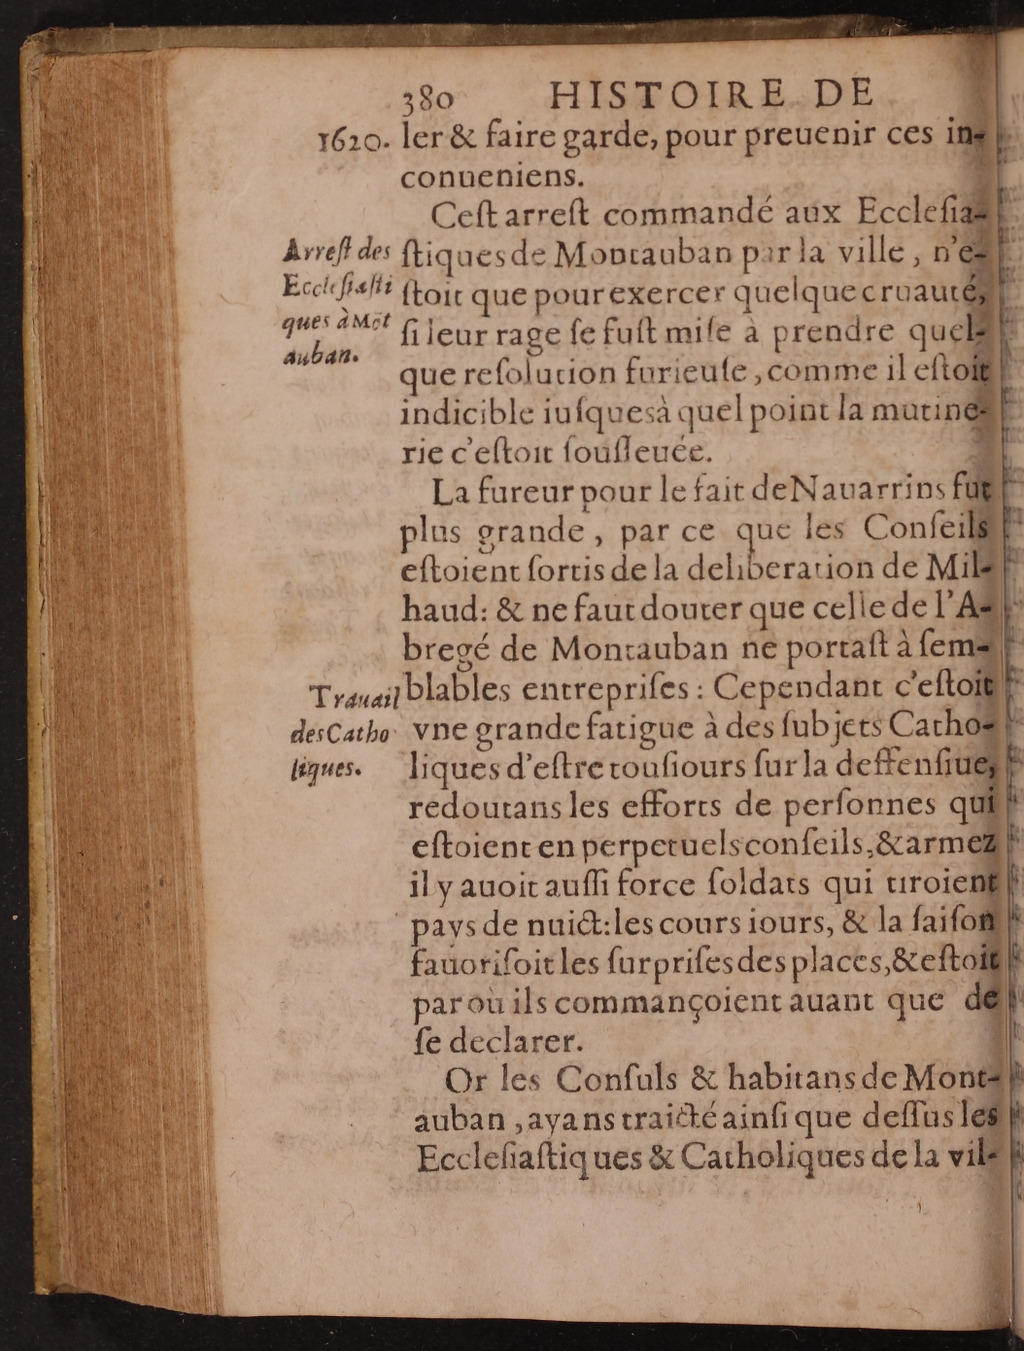 380 HISTOIRE DE
1620. ler & faire garde, pour preuenir ces in-
conueniens.
Ceſt arreſt commandé aux Eccleſia-
Arreſt des ſtiques de Montauban par la ville, n'e-
Eccleſiaſti ſtoit que pour exercer quelque cruauté,
ques à Mōt ſi leur rage ſe fuſt miſe à prendre quel-
auban. que reſolution furieuſe, comme il eſtoit
indicible iuſques à quel point la mutine-
rie c'eſtoit ſouſleuée.
La fureur pour le fait de Nauarrins fut
plus grande, par ce que les Conſeils
eſtoient ſortis de la deliberation de Mil-
haud: & ne faut douter que celle de l'A-
bregé de Montauban ne portaſt à ſem-
Trauail blables entrepriſes: Cependant c'eſtoit
des Catho vne grande fatigue à des ſubjets Catho-
liques. liques d'eſtre touſiours ſur la deffenſiue,
redoutans les efforts de perſonnes qui
eſtoient en perpetuels conſeils, & armez
il y auoit auſſi force ſoldats qui tiroient
pays de nuict: les cours iours, & la ſaiſon
fauoriſoit les ſurpriſes des places, & eſtoit
par où ils commançoient auant que de
ſe declarer.
Or les Conſuls & habitans de Mont-
auban, ayans traicté ainſi que deſſus les
Eccleſiaſtiques & Catholiques de la vil-